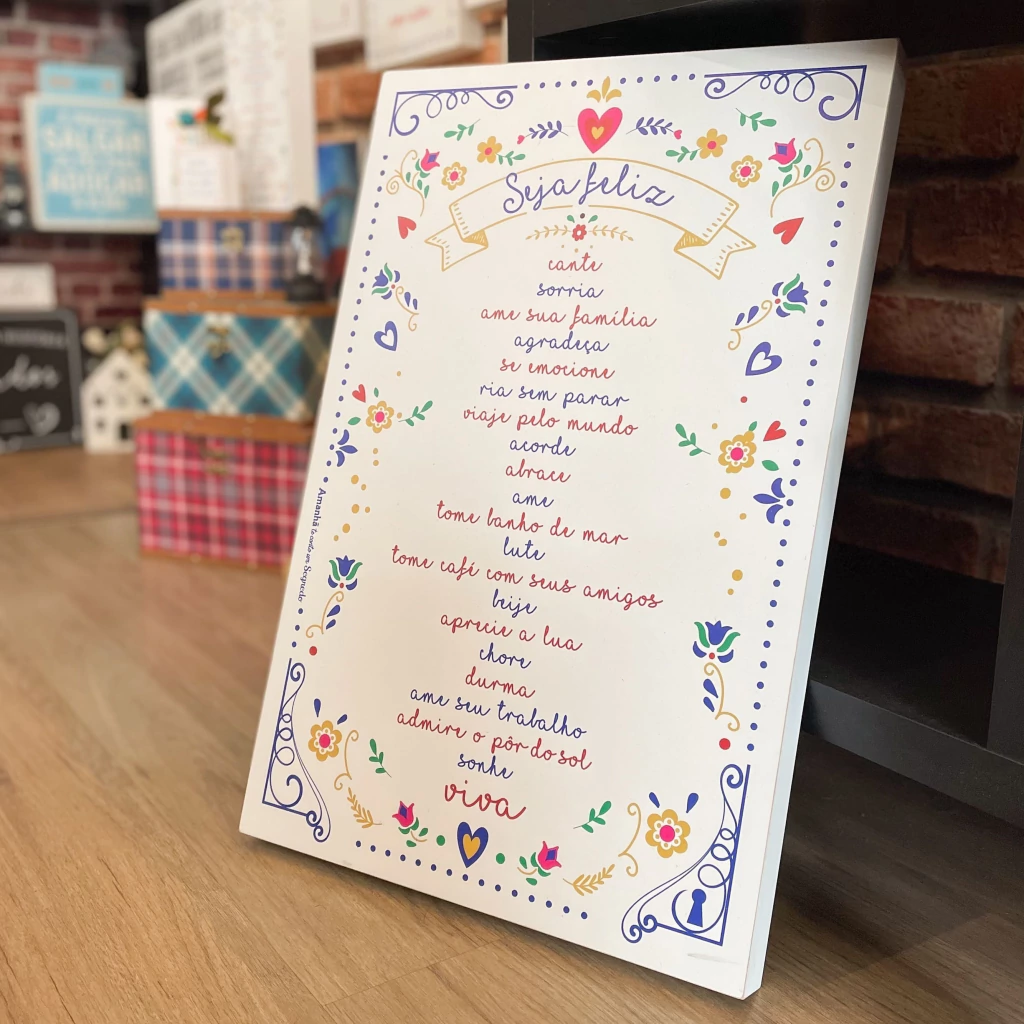 Seja feliz
cante
sorria
ame sua família
agradeça
se emocione
ria sem parar
viaje pelo mundo
acorde
abrace
ame
tome banho de mar
lute
tome café com seus amigos
beije
aprecie a lua
chore
durma
ame seu trabalho
admire o pôr do sol
sonhe
viva
Amanhã te conto um Segredo
SALGAR